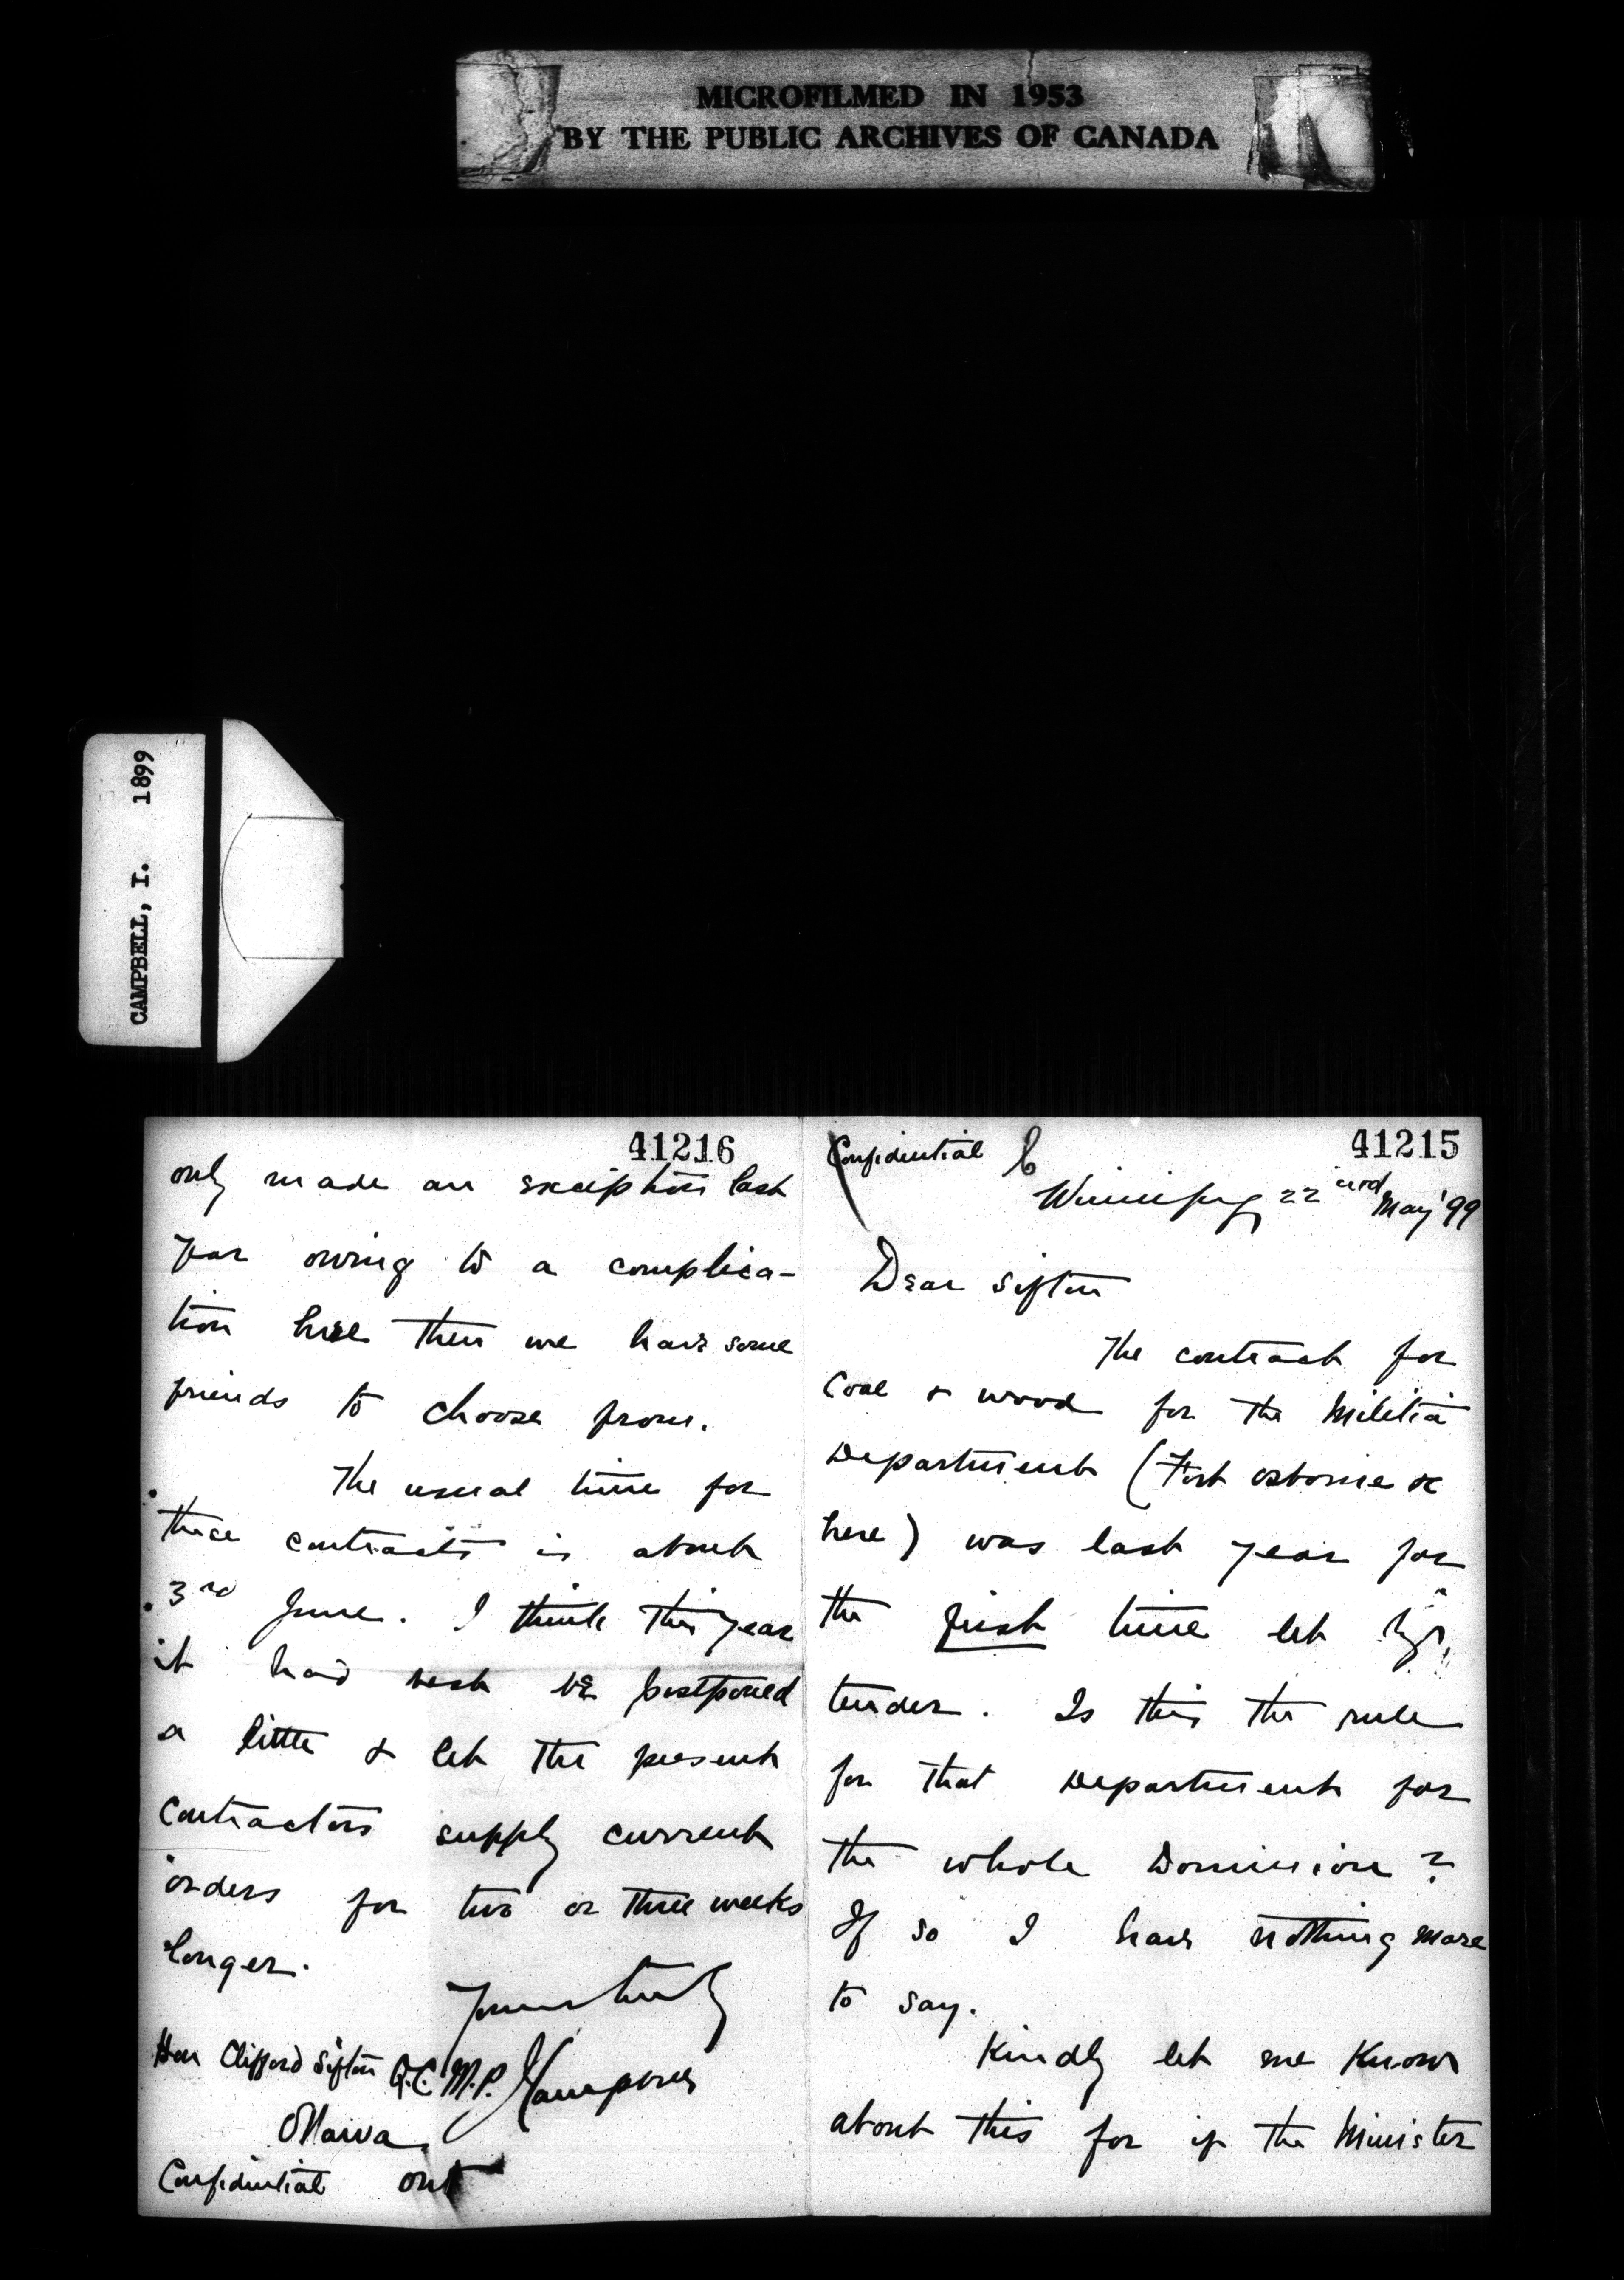 MICROFILMED IN 1953
BY THE PUBLIC ARCHIVES OF CANADA
CAMPBELL, I. 1899
41215
Confidential
Winnipeg 22nd May '99
Dear Sifton
The contract for
Coal & wood for the Militia
Department (Fort Osborne &c
here) was last year for
the first time let by
tender. Is this the rule
for that Department for
the whole Dominion?
If so I have nothing more
to say.
Kindly let me know
about this for if the Minister
41216
only made an exception last
year owing to a complica-
tion here then we have some
friends to choose from.
The usual time for
these contracts is about
3rd June. I think this year
it had best be postponed
a little & let the present
contractors supply current
orders for two or three weeks
longer.
Yours truly
Hon Clifford Sifton Q.C. M.P.
Ottawa
Confidential Ont